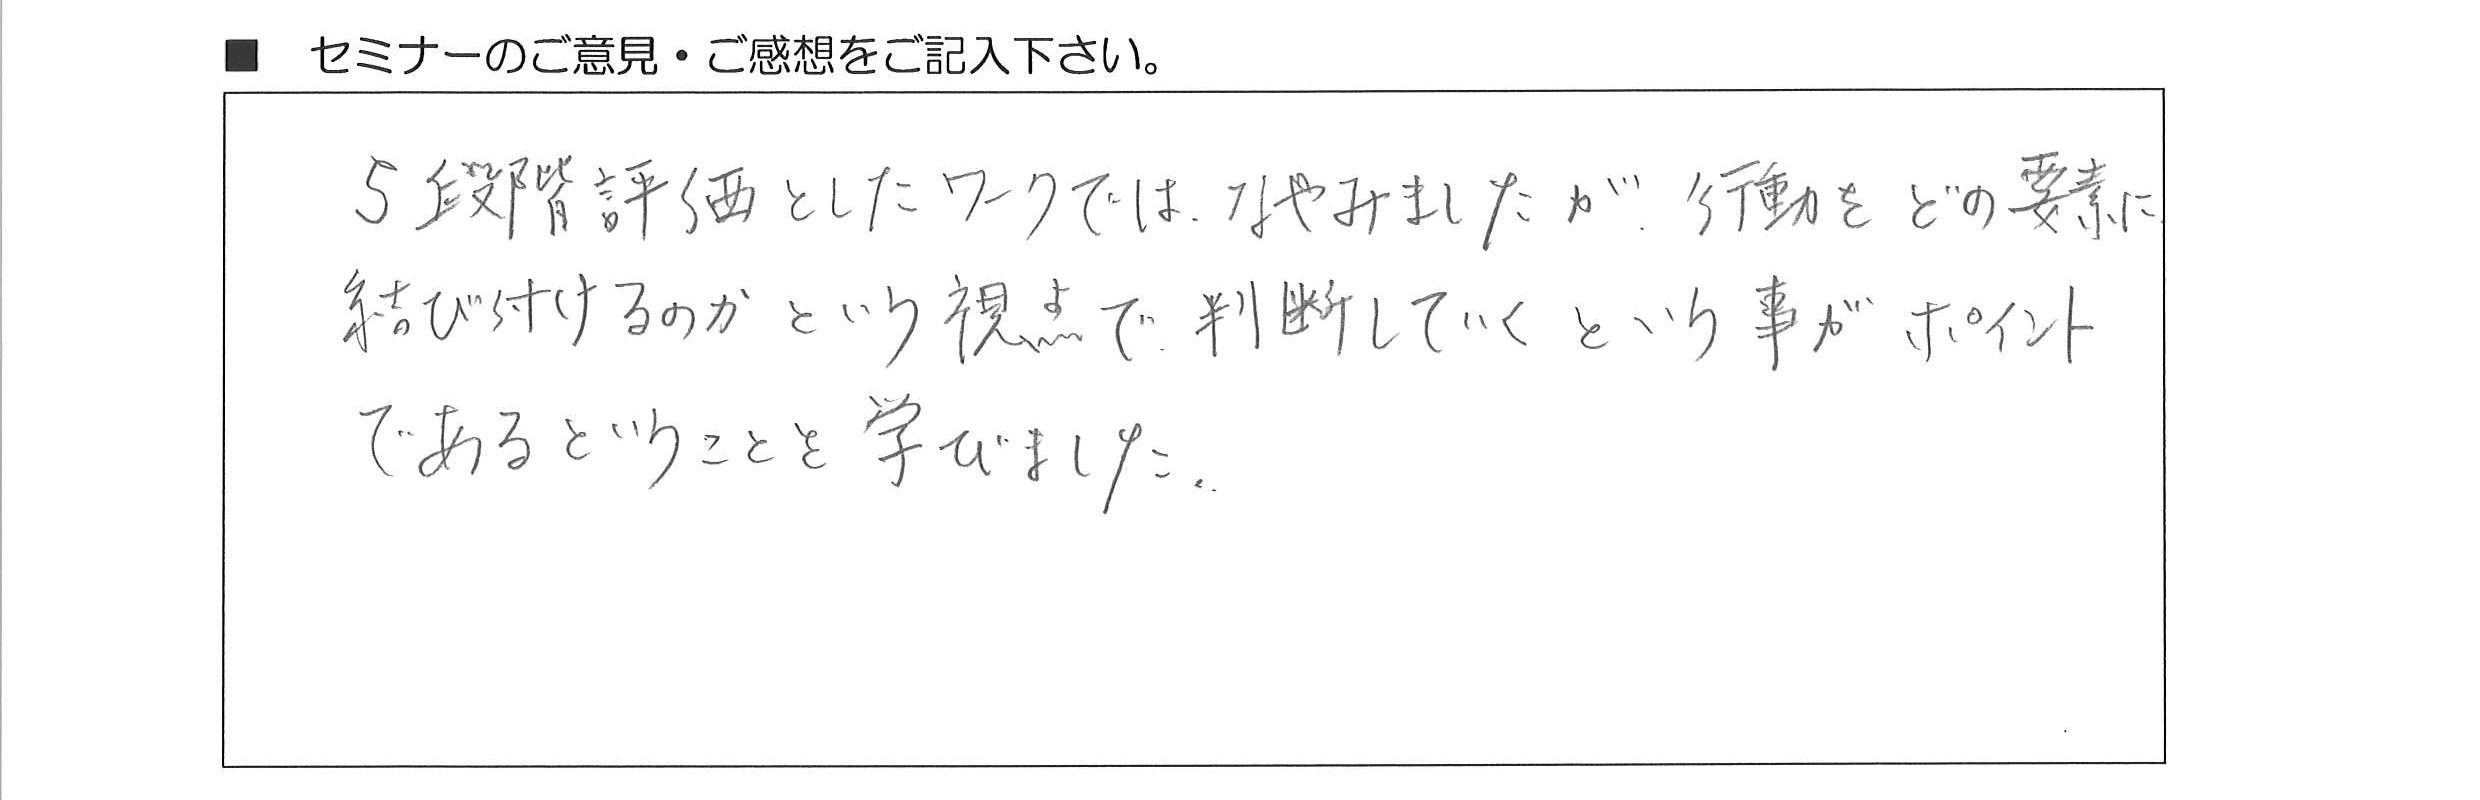 ■ セミナーのご意見・ご感想をご記入下さい。
5段階評価としたワークでは、なやみましたが、行動をどの要素に
結び付けるのかという視点で、判断していくという事がポイント
であるということを学びました。